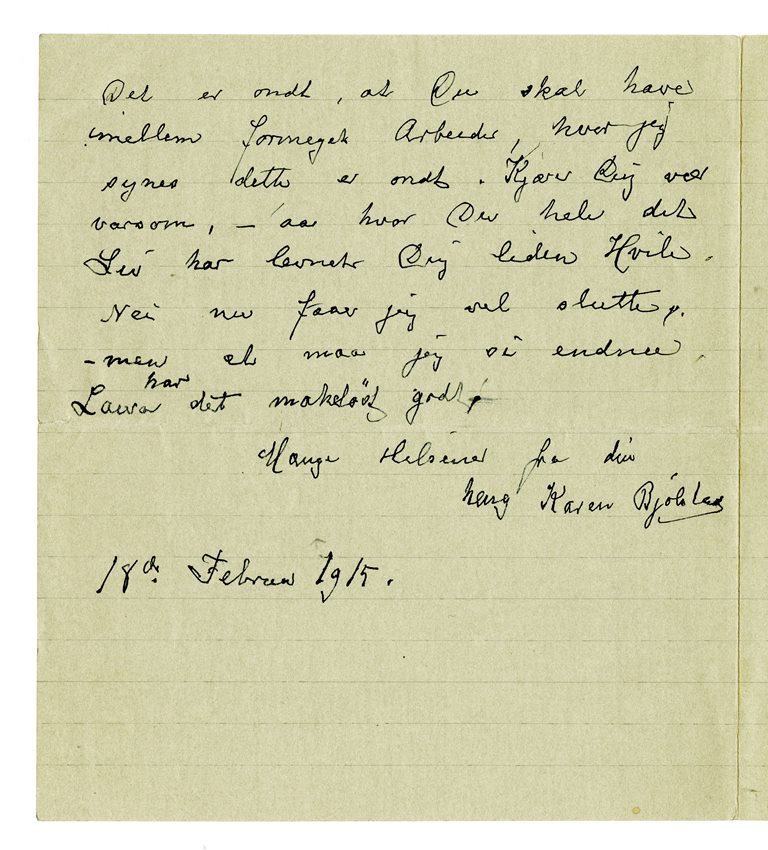 Det er ondt, at Du skal have
imellem formeget Arbeide, hvor jeg
synes dette er ondt. Kjære Dig vær
varsom, – aa hvor Du hele det
Liv har levnet Dig liden Hvile.
Nei nu faar jeg vel slutte,
– men et maa jeg si endnu,
Laura har det makeløst godt,
Mange Hilsener fra din
heng Karen Bjølstad
18de Februar 1915.